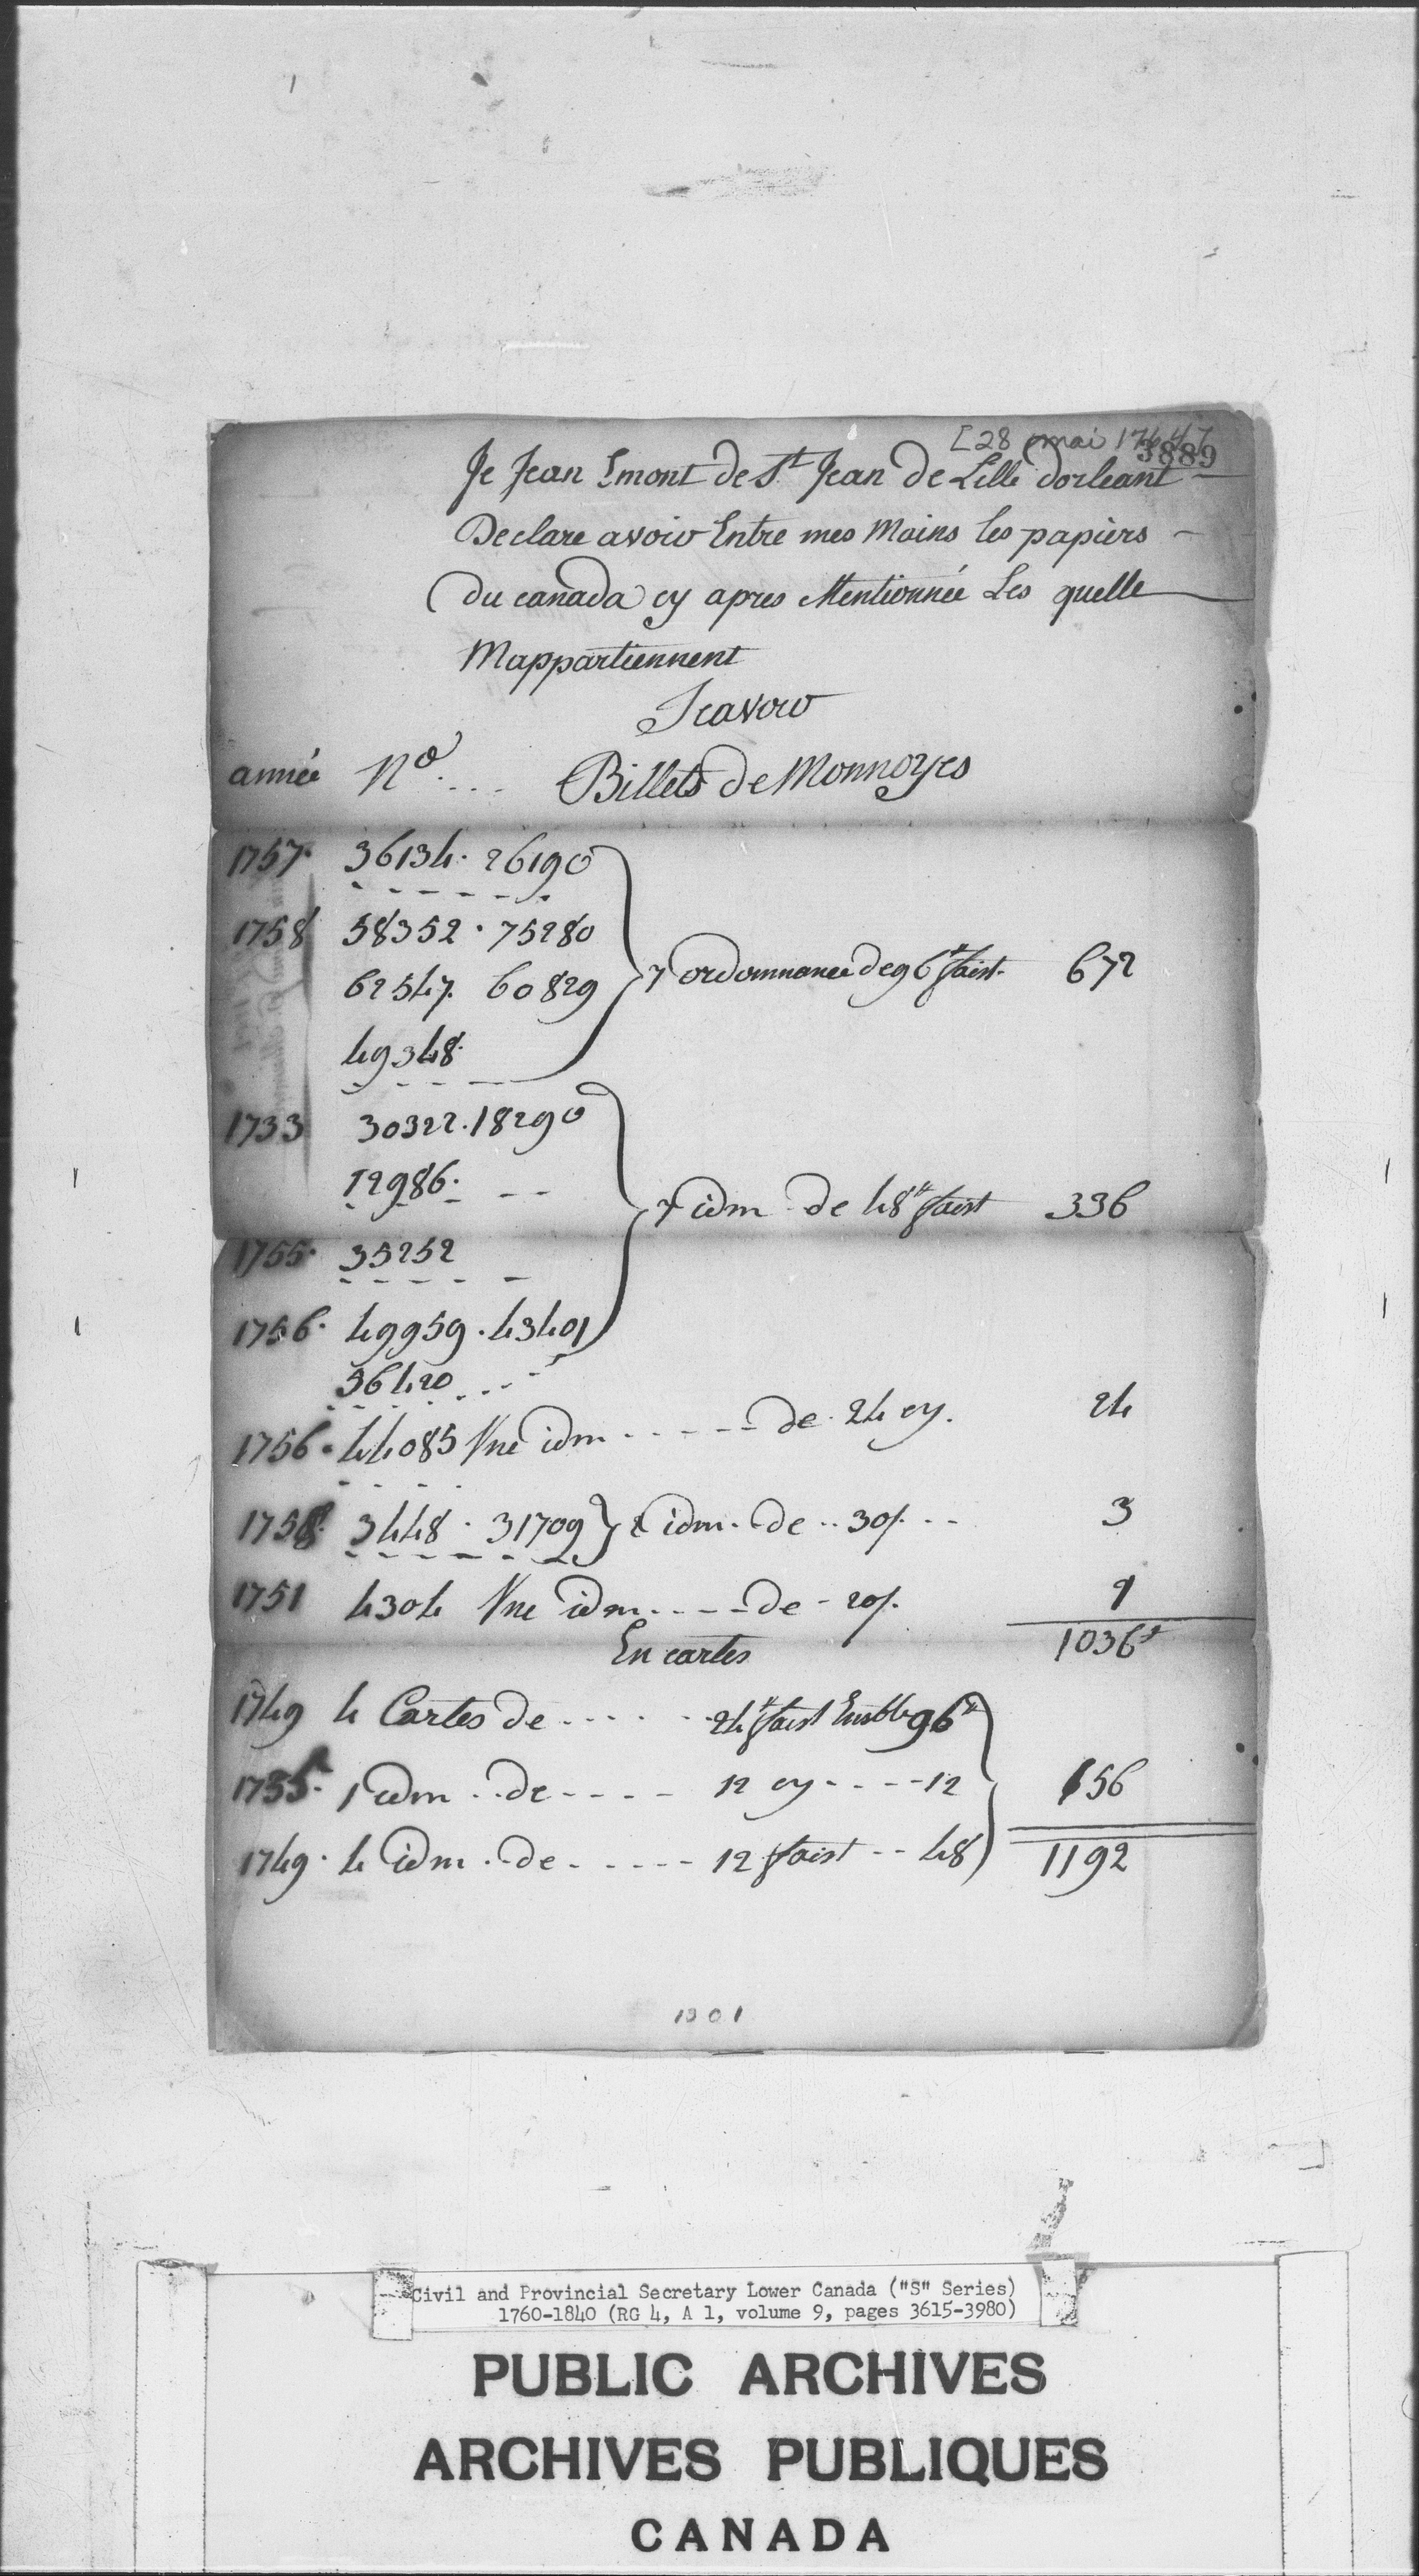 [28 mai 1764]
3889
Je Jean Emont de St Jean de Lille dorleant
Declare avoir Entre mes Mains les papiers
du canada cy apres Mentionnée Les quelle
Mappartiennent
Scavoir
année No.... Billets de Monnoyes
1757. 36134. 26190
1758 58352. 75280
62547. 60829 7 ordonnance de 96# faist. 672
49348.
1733 30322. 18290
12986. 7 idm de 48# faist 336
1755. 35252
1756. 49959. 43401
36420
1756. 44085 Une idm ...... de 24 cy. 24
1758. 3448. 31709 } 2 idm. de .. 30/. .. 3
1751 4304 Une idm .... de - 20/. 1
1036#
En cartes
1749 4 Cartes de ...... 24# faist Enslle 96#
1755. 1 idm .. de ..... 12 cy .... 12 156
1749. 4 idm. de ...... 12 faist .. 48 1192
1301
Civil and Provincial Secretary Lower Canada ("S" Series)
1760-1840 (RG 4, A 1, volume 9, pages 3615-3980)
PUBLIC ARCHIVES
ARCHIVES PUBLIQUES
CANADA